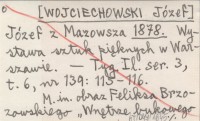 [WOJCIECHOWSKI Józef]
Józef z Mazowsza 1878. Wy-
stawa sztuk pięknych w War-
szawie. — Tyg. Il. ser. 3,
t. 6, nr 139: 115-116.
M. in. obraz Feliksa Brzo-
zowskiego „Wnętrze bukowego